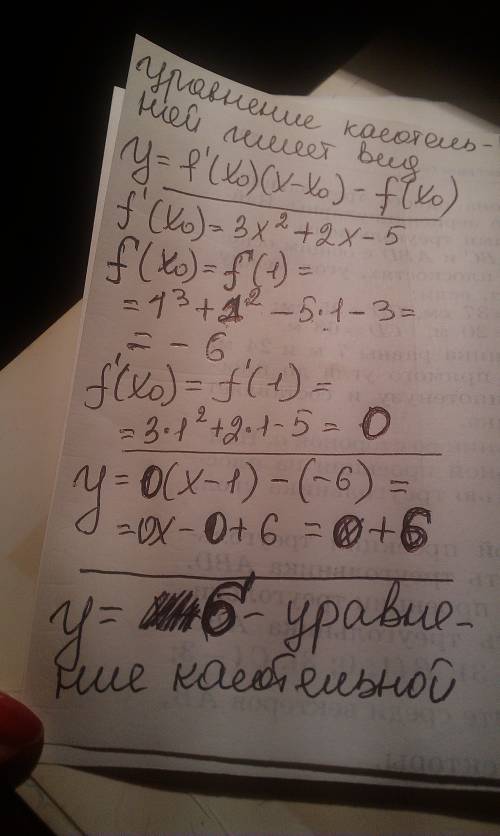 уравнение касатель-
ной имеет вид
y = f'(x₀)(x-x₀) - f(x₀)
f'(x₀) = 3x² + 2x - 5
f'(x₀) = f'(1) =
= 1³ + 1² - 5·1 - 3 =
= - 6
f'(x₀) = f'(1) =
= 3·1² + 2·1 - 5 = 0
y = 0(x-1) - (-6) =
= 0x - 0 + 6 = 0 + 6
y = 6 - уравне-
ние касательной